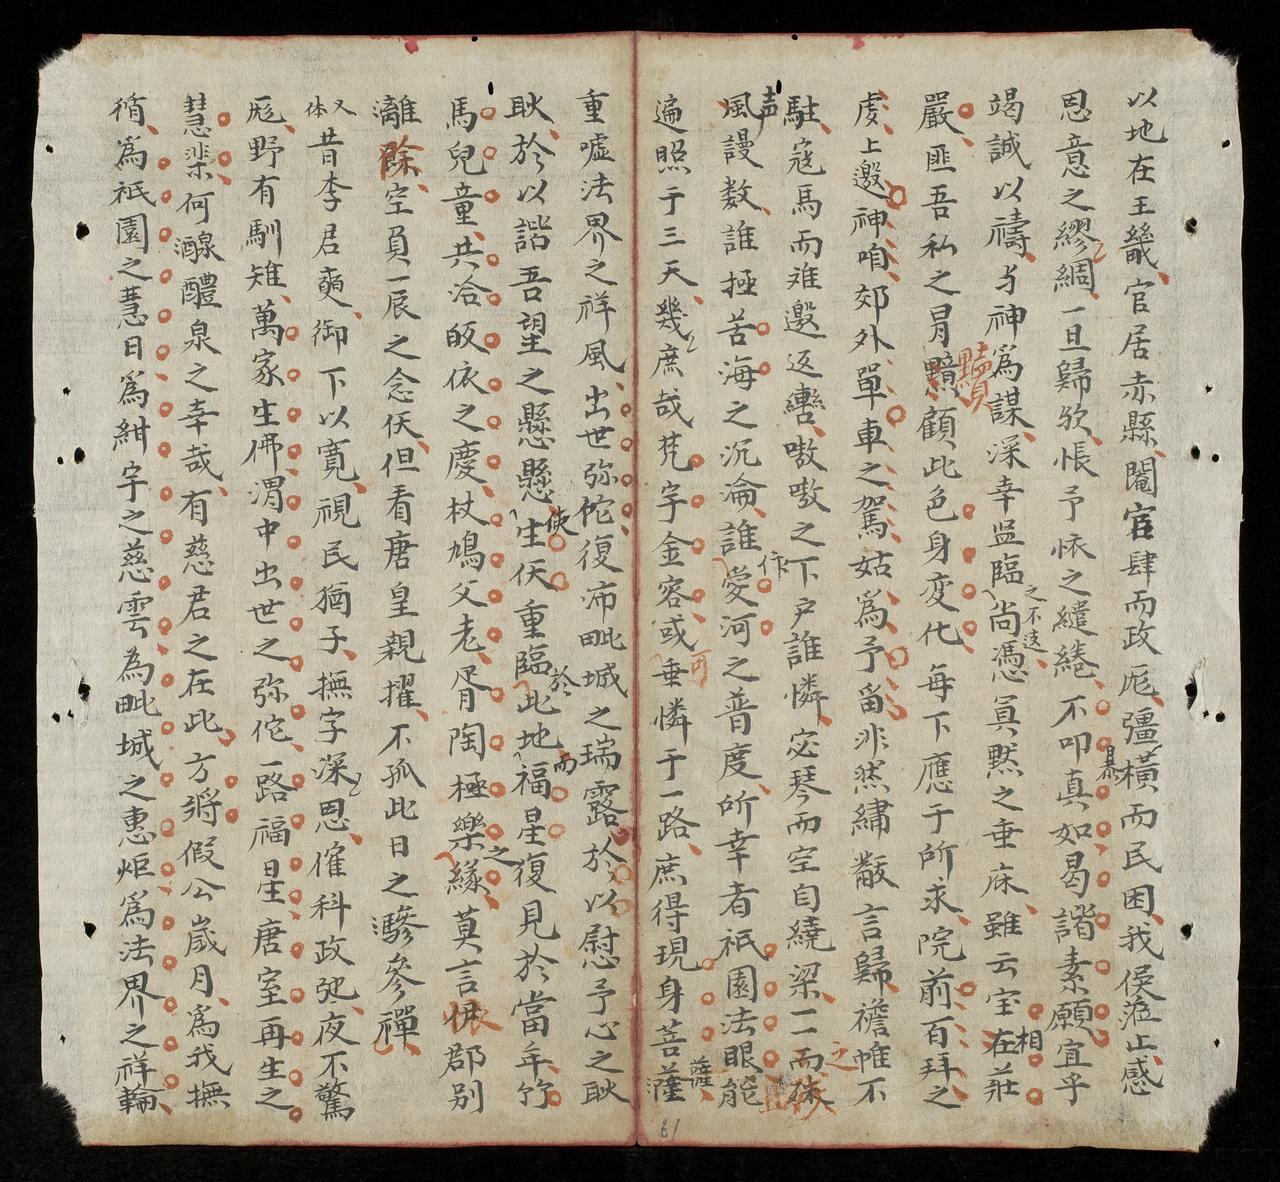 以地在王畿官居赤縣閹官肆而政厖彊橫而民困我侯蒞止感
恩意之繆綢一旦歸欤悵予懷之繾綣不叩真如曷諧素願宜乎
竭誠以禱与神為謀深幸监臨尚憑冥黙之垂庥雖云宝在莊
嚴匪吾私之冐黷顧此色身变化每下應于所求院前百拜之
虔上邀神咱郊外單車之駕姑為予畱非然繡黻言歸襜帷不
駐寇馬而难邀返轡嗷嗷之下户誰憐宓琴而空自繞梁一一而殊
風謾数誰極苦海之沉淪誰変河之普度所幸者祇園法眼能
遍照于三天幾庶哉梵宇金容或垂憐于一路庶得現身菩薩
重嘘法界之祥風出世弥佗復沛毗城之瑞露於以慰予心之耿
耿於以諧吾望之懸懸生仸重臨此地福星復見於當年竹
馬兒童共洽皈依之慶杖鳩父老胥陶極樂緣莫言伊郡别
離餘空負一辰之念仸但看唐皇親擢不孤此日之骖參禪
又体昔李君奭御下以寛視民猶子撫字深恩催科政弛夜不驚
厖野有馴雉萬家生佛渭中出世之弥佗一路福星唐室再生之
慧棐何釂醴泉之幸哉有慈君之在此方將假公歲月為我撫
循為祇園之慧日為紺宇之慈雲為毗城之惠炬為法界之祥輪